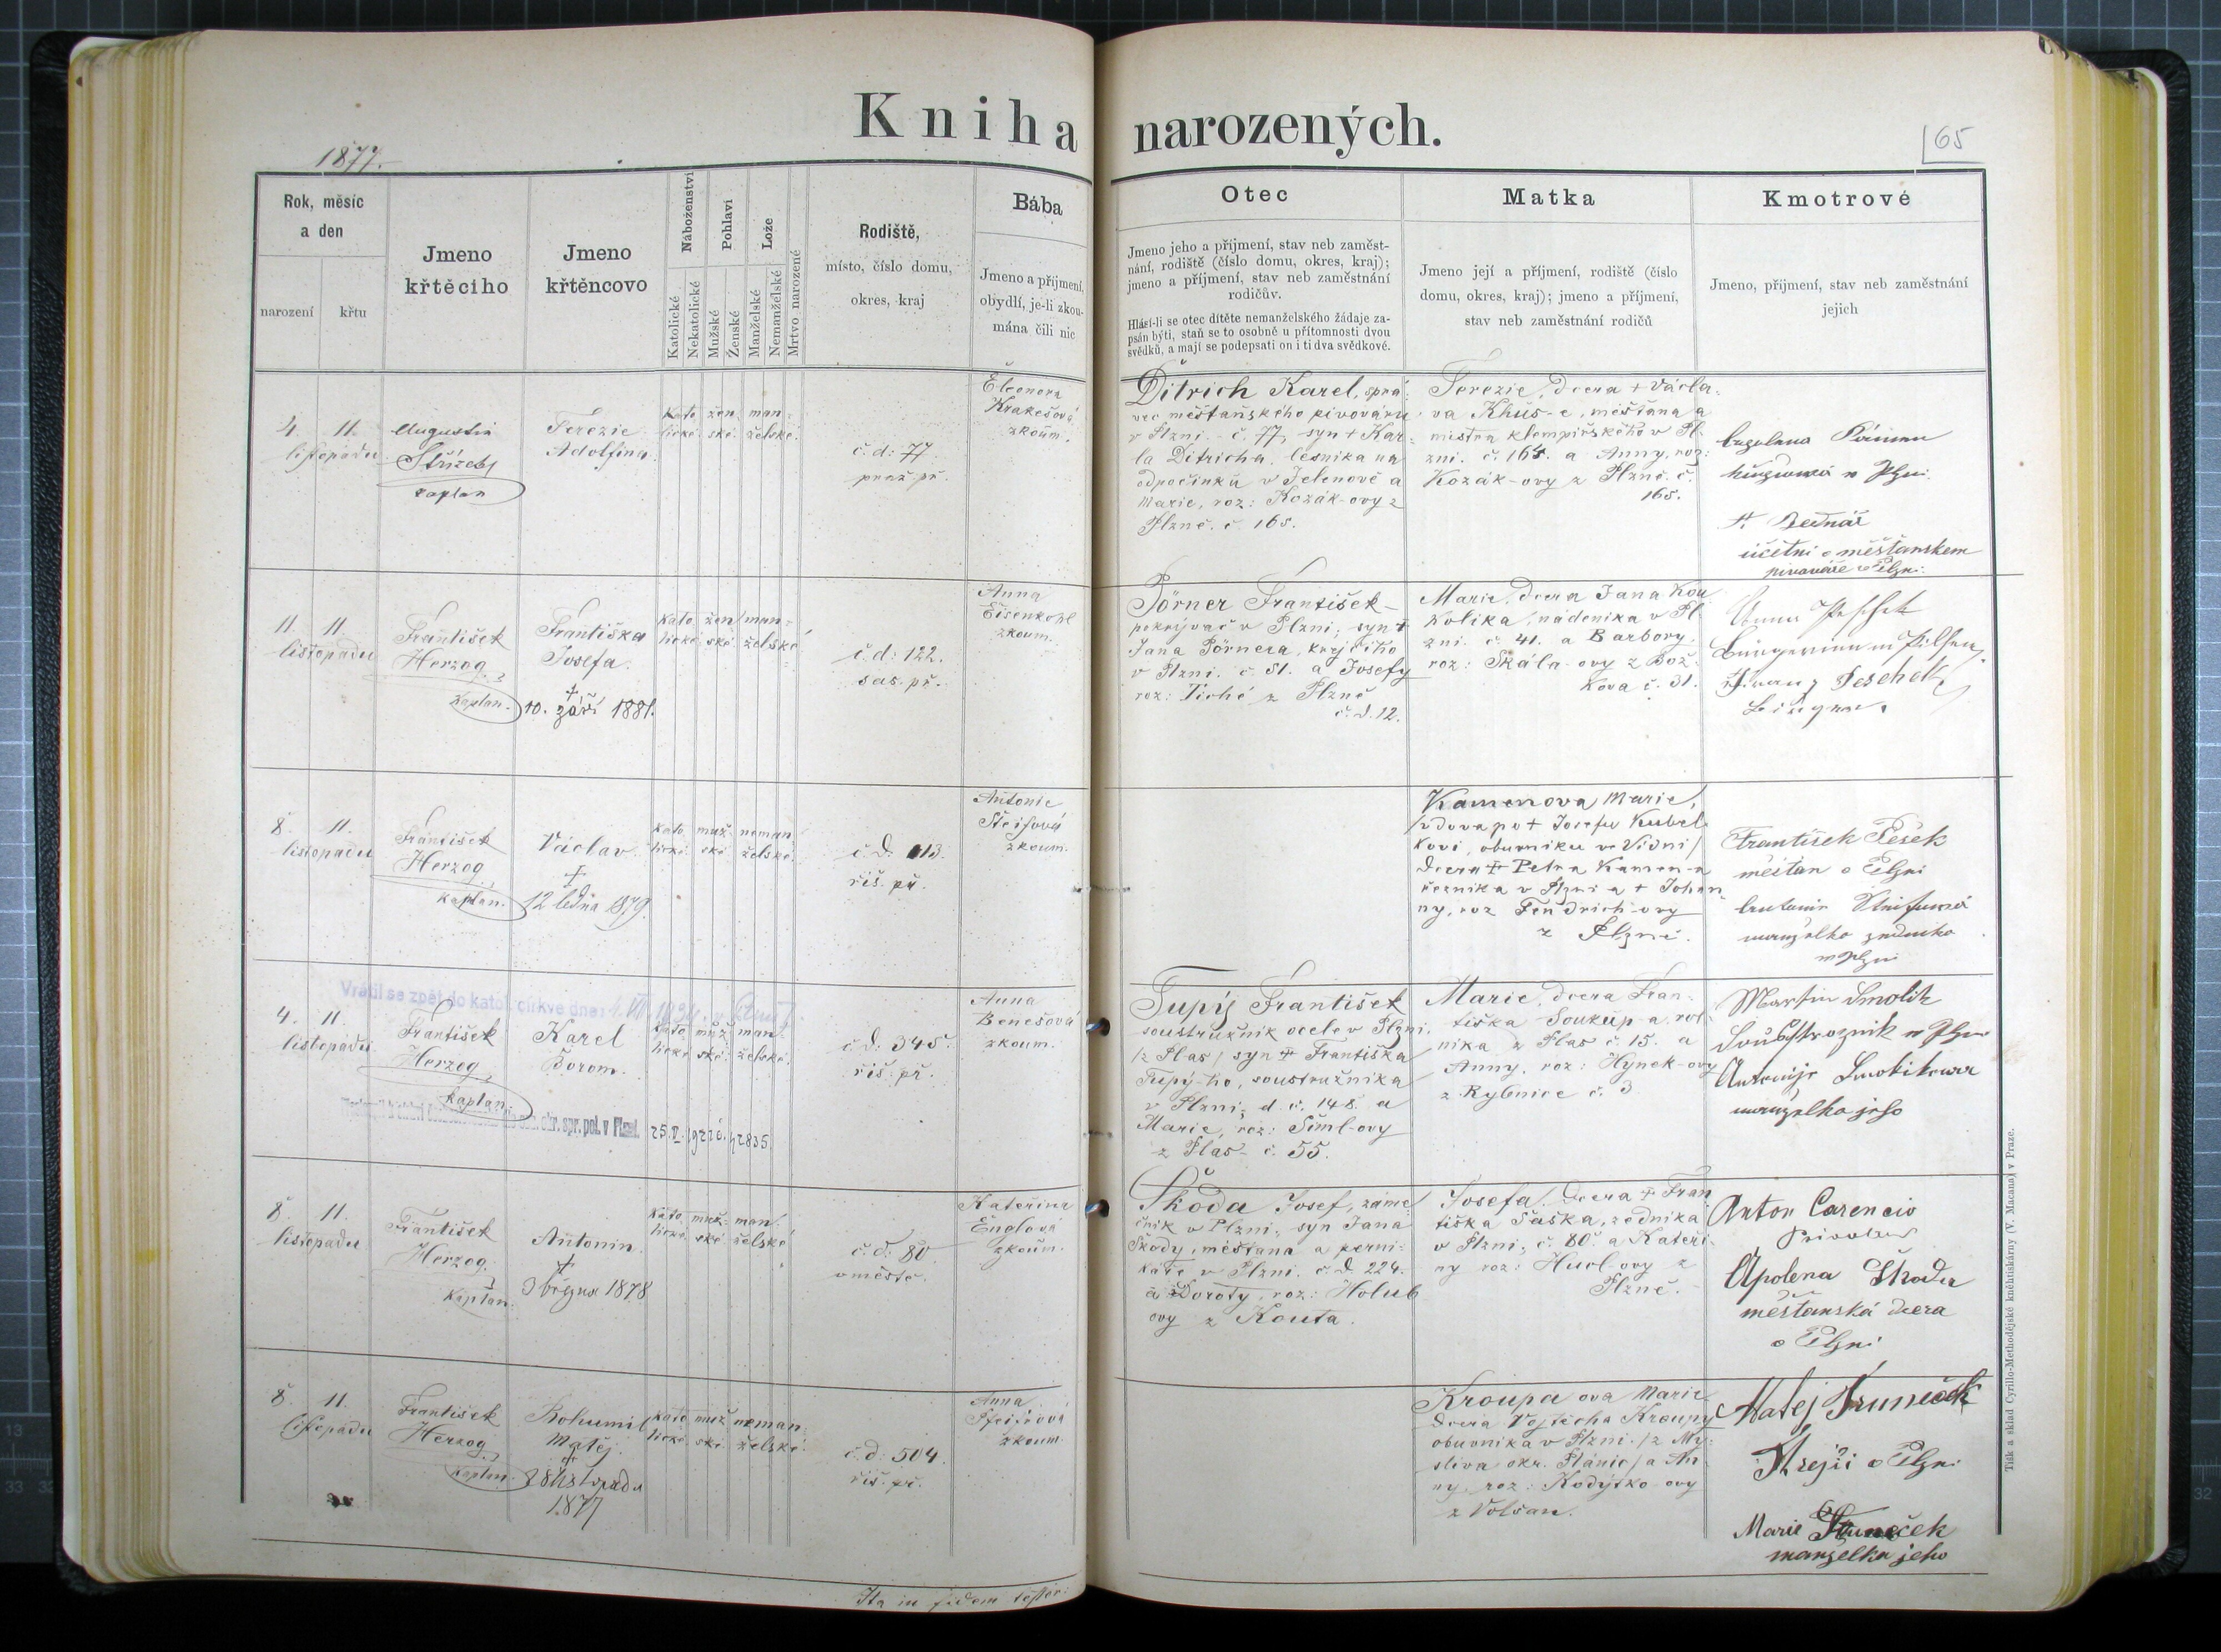 Kniha narozených.
1877.
65
Rok, měsíc
a den
narození
křtu
Jmeno
křtěcího
Jmeno
křtěncovo
Náboženství
Katolické
Nekatolické
Pohlaví
Mužské
Ženské
Lože
Manželské
Nemanželské
Mrtvo narozené
Rodiště,
místo, číslo domu,
okres, kraj
Bába
Jmeno a příjmení,
obydlí, je-li zkou-
mána čili nic
Otec
Jmeno jeho a příjmení, stav neb zaměst-
nání, rodiště (číslo domu, okres, kraj);
jmeno a příjmení, stav neb zaměstnání
rodičův.
Hlásí-li se otec dítěte nemanželského žádaje za-
psán býti, staň se to osobně u přítomnosti dvou
svědků, a mají se podepsati on i ti dva svědkové.
Matka
Jmeno její a příjmení, rodiště (číslo
domu, okres, kraj); jmeno a příjmení,
stav neb zaměstnání rodičů
Kmotrové
Jmeno, přijmení, stav neb zaměstnání
jejich
4. 11.
listopadu
Augustin
Střízek
kaplan
Terezie
Adolfina
Kato žen man-
lické ské želské
č. d: 77
praž. př.
Eleonora
Krakešová
zkoum.
Ditrich Karel, sprá-
vec měšťanského pivováru
v Plzni - č. 77, syn + Kar-
la Ditricha, lesníka na
odpočinku v Jelenově a
Marie, roz: Kozák-ovy z
Plzně. č. 165.
Terezie, dcera + Václa-
va Khüs-e, měšťana a
mistra klempířského v Pl-
zni. č. 164. a Anny, roz:
Kozák-ovy z Plzně. č.
165.
Bednář
účetní v měšťanskem
pivováře v Plzni.
11. 11.
listopadu
František
Herzog
kaplan.
Františka
Josefa.
†
10. září 1881.
Kato žen man-
lické ské želské
č. d: 122.
sas. př.
Anna
Eisenkopl
zkoum.
Pörner František -
pokrývač v Plzni; syn +
Jana Pörnera, krejčího
v Plzni. č. 51. a Josefy
roz: Tiché z Plzně
č. d. 12.
Marie, dcera Jana Kou
kolíka, nádeníka v Pl-
zni. č. 41. a Barbory,
roz: Skála-ovy z Bož-
kova č. 31.
Anna Peschek
Bürgerin in Pilsen
Franz Peschek
Bürger.
8. 11.
listopadu
František
Herzog
kaplan.
Václav.
†
12 ledna 1879.
Kato muž neman
lické ské želské
č. d: 113.
říš. př.
Antonie
Šteifová
zkoum.
Kamenova Marie,
/vdova po + Josefu Kubel-
kovi, obuvníku ve Vídni/
dcera + Petra Kamen-a
řezníka v Plzni a + Johan
ny, roz Fendrich-ovy
z Plzně.
František Pešek
měšťan v Plzni
manželka
v Plzni
Vrátil se zpět do katol. církve dne:
4. 11.
listopadu
František
Herzog
kaplan.
Karel
Borom.
Kato muž man-
lické ské želské
č. d: 345.
říš. př.
Anna
Benešová
zkoum.
okr. spr. pol. v Plzni.
Tupý František
soustružník ocele v Plzni,
/z Plas/ syn + Františka
Tupý-ho, soustružníka
v Plzni; d. č. 148. a
Marie, roz: Siml-ovy
z Plas - č. 55.
Marie, dcera Fran-
tiška Soukup a rol-
níka z Plas č. 15. a
Anny, roz: Hynek-ovy
z Rybnice č. 3
Martin Smolik
Soustružnik v Plzni
Antonije Smolikowa
manželka jeho
8. 11.
listopadu
František
Herzog.
kaplan.
Antonin.
†
3 března 1878
Kato muž man-
lické ské želské
č. d: 80
v městě.
Kateřina
Englová
zkoum.
Škoda Josef, záme
čník v Plzni, syn Jana
Škody, měšťana a perní-
káře v Plzni. č. d. 224.
a Doroty, roz: Holub
ovy z Kouta.
Josefa, dcera + Fran
tiška Šaška, zedníka
v Plzni; č. 80. a Kateři-
ny roz: Hurl-ovy z
Plzně.
Anton Carencio
Apolena Škoda
měšťanská dcera
v Plzni
8. 11.
listopadu
František
Herzog
kaplan.
Bohumil
Matěj.
†
28 listopadu
1877
Kato muž neman
lické ské želské
č. d: 504.
říš. př.
Anna
Pfeifrová
zkoum.
Kroupa ova Marie
dcera Vojtěcha Kroupy
obuvníka v Plzni. /z My-
slíva okr. Plánic/ a An-
ny, roz: Kodýtko-ovy
z Volšan.
Matěj Truneček
Krejčí v Plzni
Marie Truneček
manželka jeho
Ita in fidem testor:
Tisk a sklad Cyrillo-Methodějské knihtiskárny (V. Macana) v Praze.